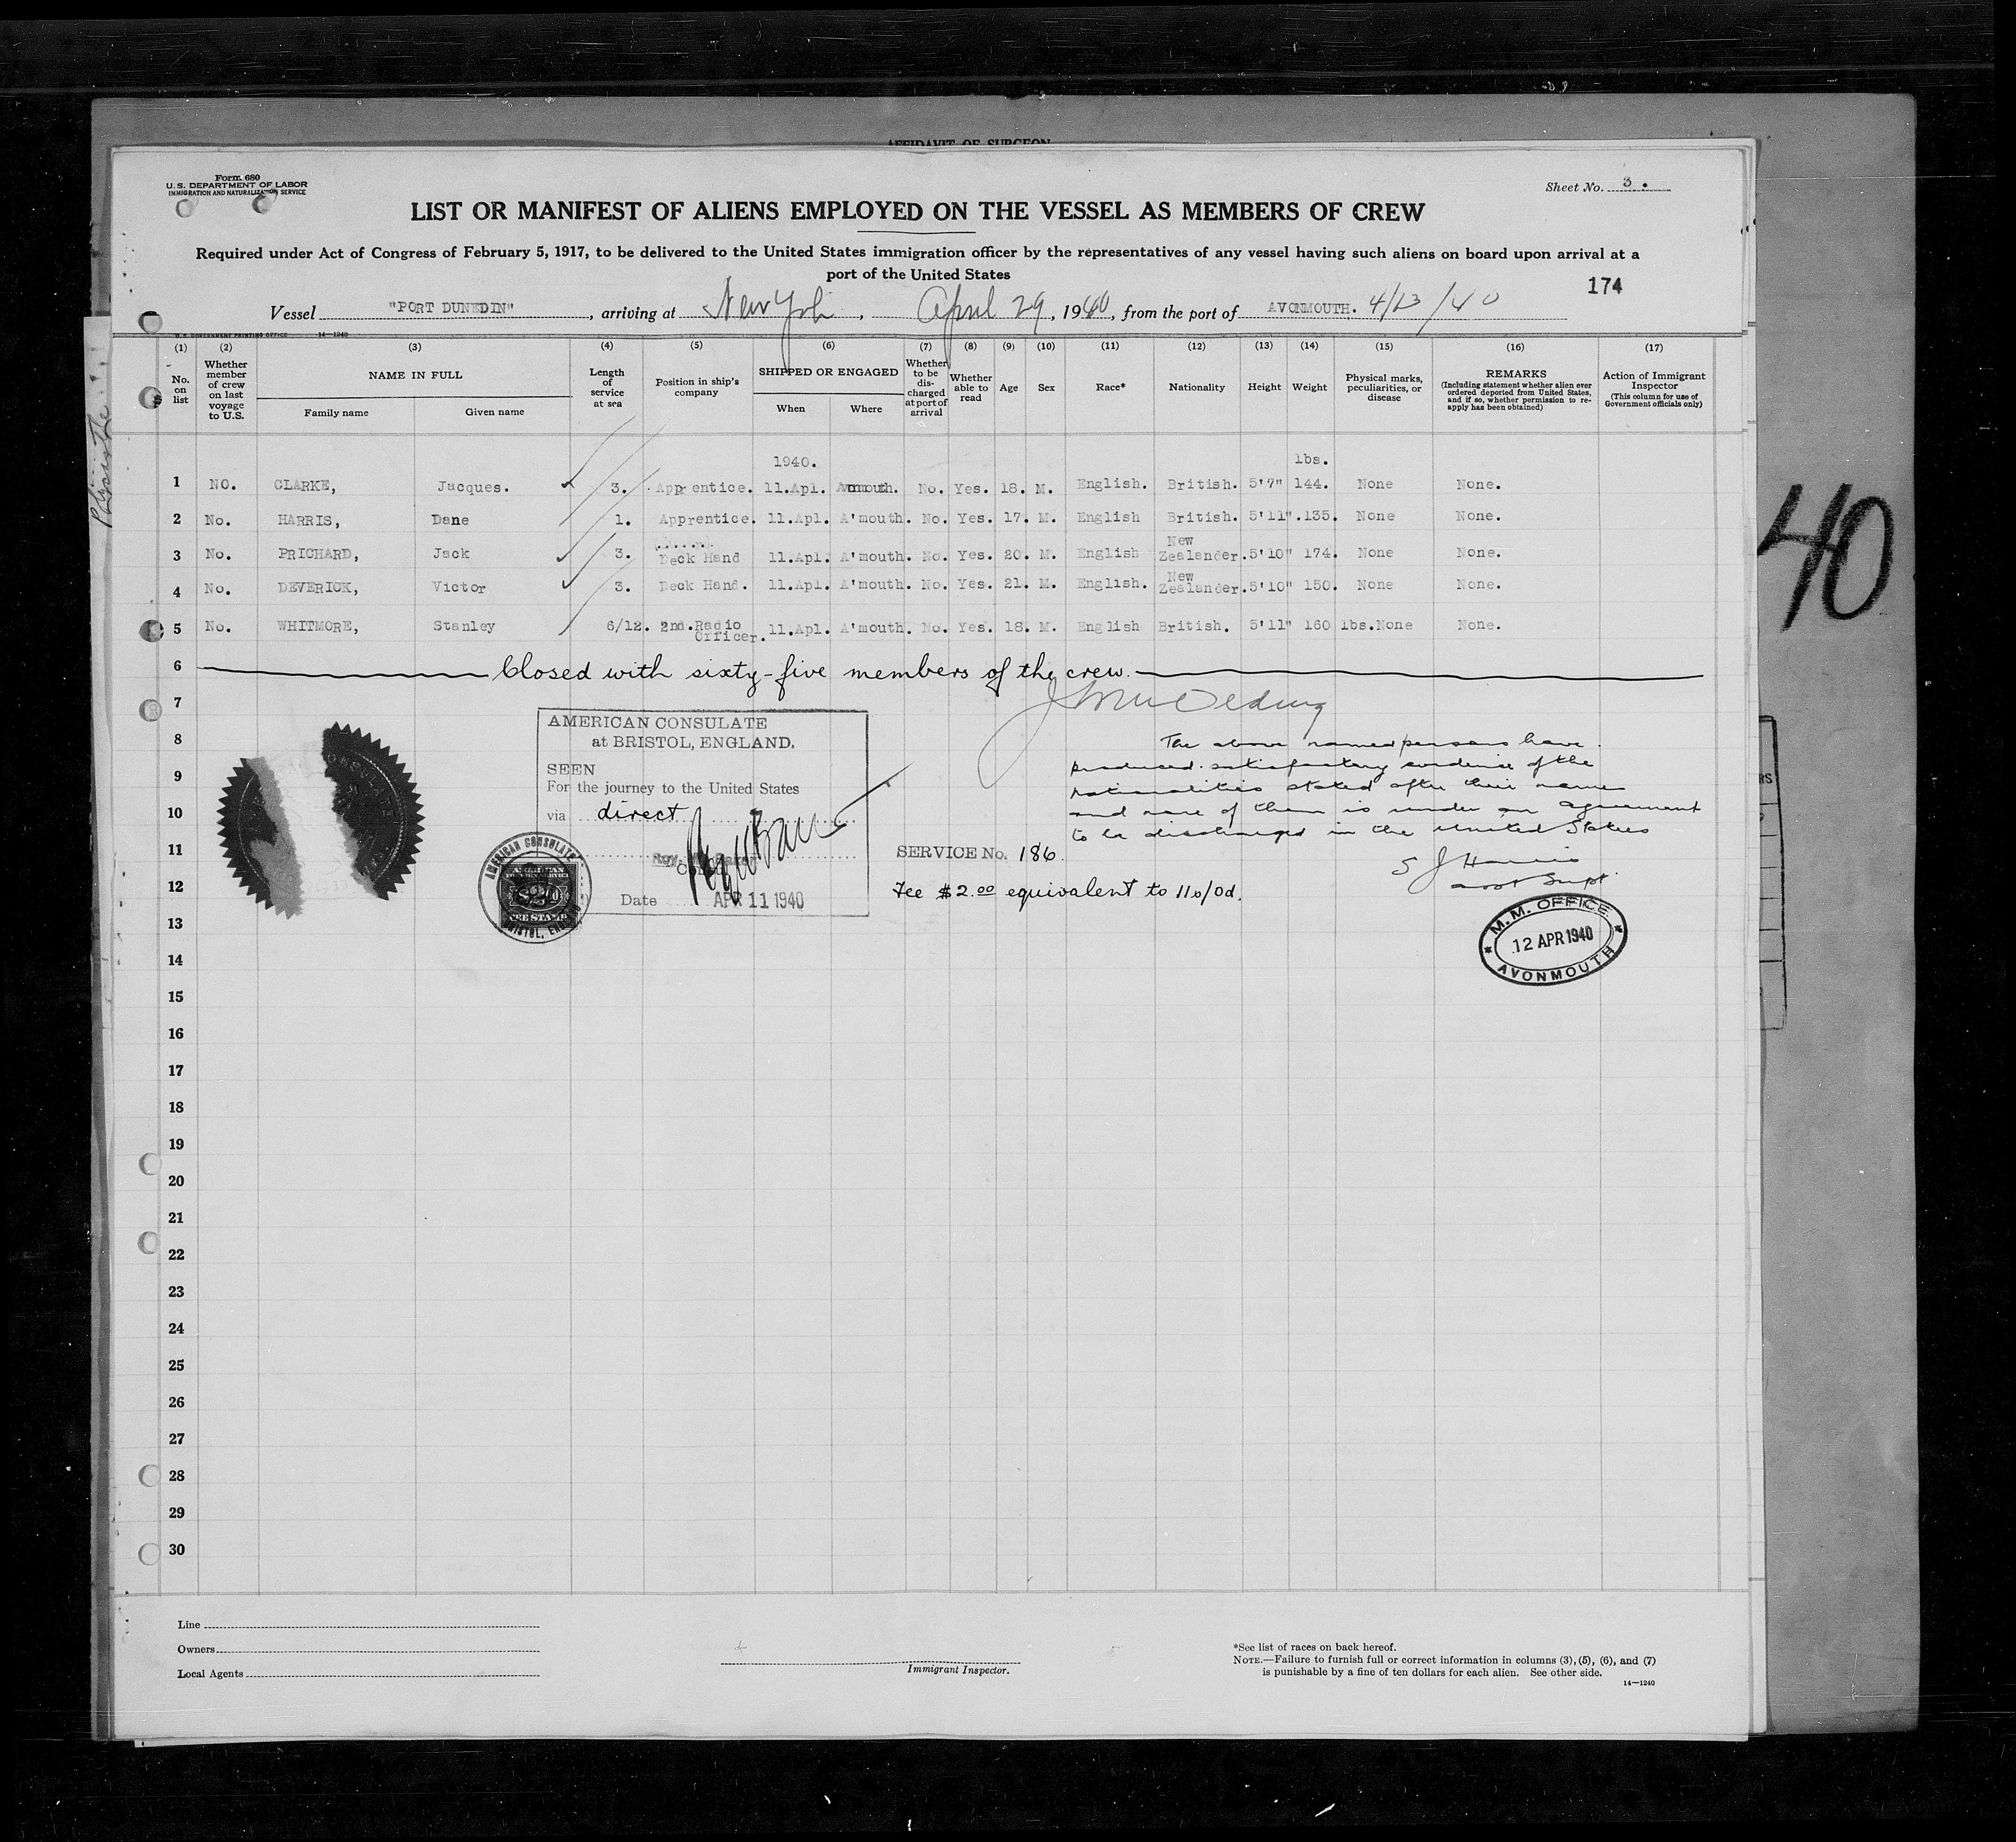 AFFIDAVIT OF SURGEON
Form 680
U.S. DEPARTMENT OF LABOR
IMMIGRATION AND NATURALIZATION SERVICE
Sheet No. 3.
LIST OR MANIFEST OF ALIENS EMPLOYED ON THE VESSEL AS MEMBERS OF CREW
Required under Act of Congress of February 5, 1917, to be delivered to the United States immigration officer by the representatives of any vessel having such aliens on board upon arrival at a
port of the United States
174
Vessel "PORT DUNEDIN", arriving at New York, April 29, 1940, from the port of AVONMOUTH. 4/13/40
U.S. GOVERNMENT PRINTING OFFICE 14—1240
(1) (2) (3) (4) (5) (6) (7) (8) (9) (10) (11) (12) (13) (14) (15) (16) (17)
No. on list
Whether member of crew on last voyage to U.S.
NAME IN FULL
Family name
Given name
Length of service at sea
Position in ship's company
SHIPPED OR ENGAGED
When
Where
Whether to be discharged at port of arrival
Whether able to read
Age
Sex
Race*
Nationality
Height
Weight
Physical marks, peculiarities, or disease
REMARKS
(Including statement whether alien ever ordered deported from United States, and if so, whether permission to re-apply has been obtained)
Action of Immigrant Inspector
(This column for use of Government officials only)
1940. lbs.
1 NO. CLARKE, Jacques. 3. Apprentice. 11.Apl. Avonmouth. No. Yes. 18. M. English. British. 5'7" 144. None None.
2 No. HARRIS, Dane 1. Apprentice. 11.Apl. A'mouth. No. Yes. 17. M. English British. 5'11". 135. None None.
3 No. PRICHARD, Jack 3. Deck Hand 11.Apl. A'mouth. No. Yes. 20. M. English New Zealander. 5'10" 174. None None.
4 No. DEVERICK, Victor 3. Deck Hand. 11.Apl. A'mouth. No. Yes. 21. M. English. New Zealander. 5'10" 150. None None.
5 No. WHITMORE, Stanley 6/12. 2nd.Radio Officer. 11.Apl. A'mouth. No. Yes. 18. M. English British. 5'11" 160 lbs. None None.
6 Closed with sixty-five members of the crew.
7
8
9
10
11
12
13
14
15
16
17
18
19
20
21
22
23
24
25
26
27
28
29
30
AMERICAN CONSULATE
at BRISTOL, ENGLAND.
SEEN
For the journey to the United States
via direct
Date APR 11 1940
AMERICAN CONSULATE
BRISTOL, ENGLAND
FEE STAMP
SERVICE No. 186.
Fee $2.00 equivalent to 11s/0d.
The above named persons have
produced satisfactory evidence of the
nationalities stated after their names
and none of them is under an agreement
to be discharged in the United States
S J Harris
Asst Supt.
M. M. OFFICE
12 APR 1940
AVONMOUTH
40
Line
Owners
Local Agents
Immigrant Inspector.
*See list of races on back hereof.
NOTE.—Failure to furnish full or correct information in columns (3), (5), (6), and (7)
is punishable by a fine of ten dollars for each alien. See other side.
14—1240